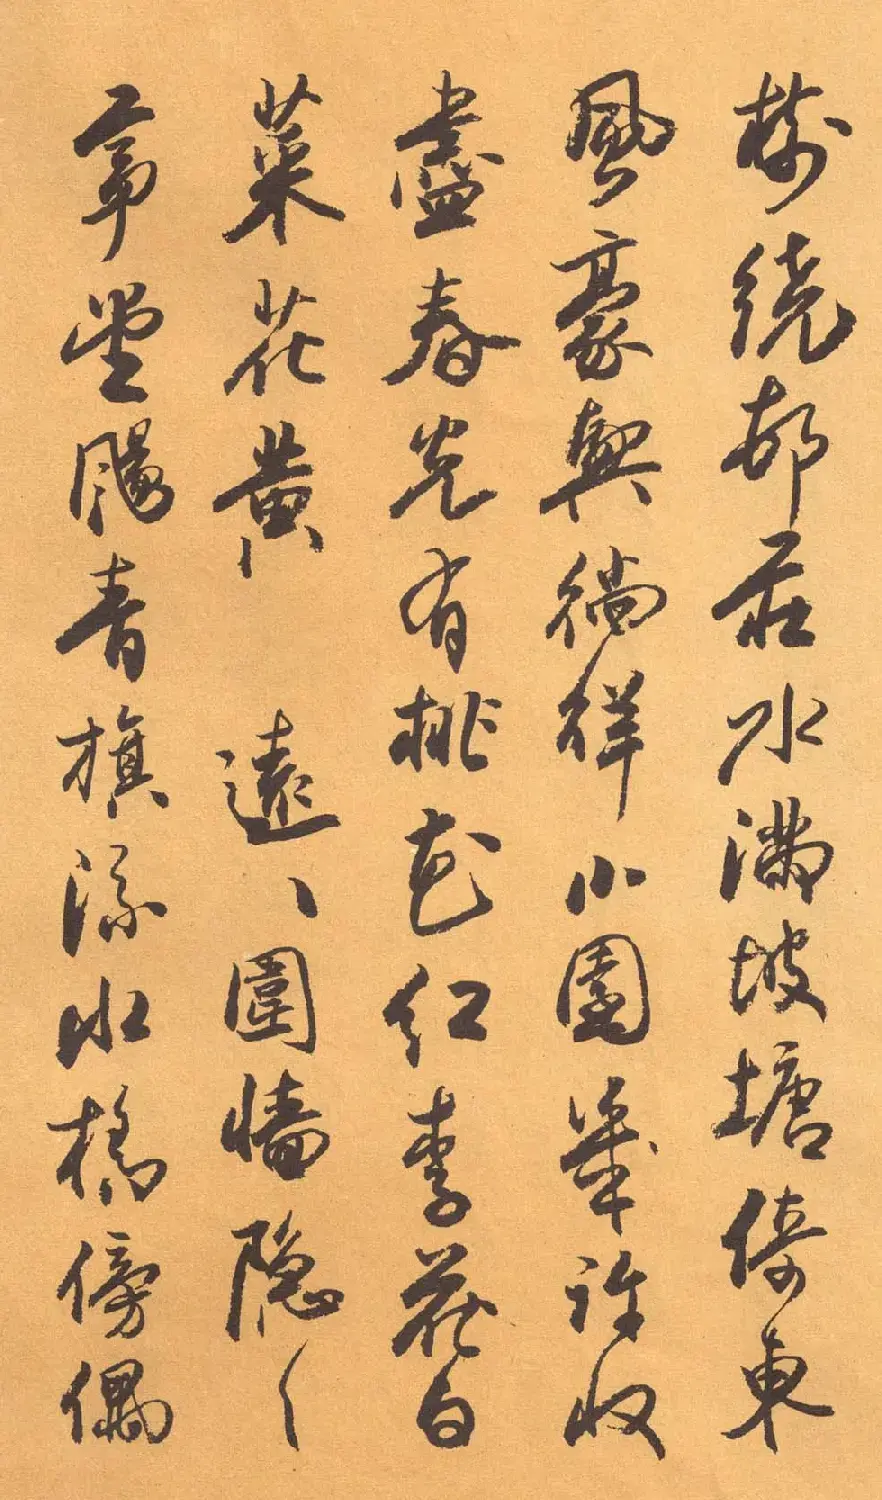 樹繞邨莊水滿坡塘倚東
風豪興徜徉小園幾許收
盡春光有桃花紅李花白
菜花黄 遠、圍墻隱〱
茅堂颺青旗流水橋傍偶